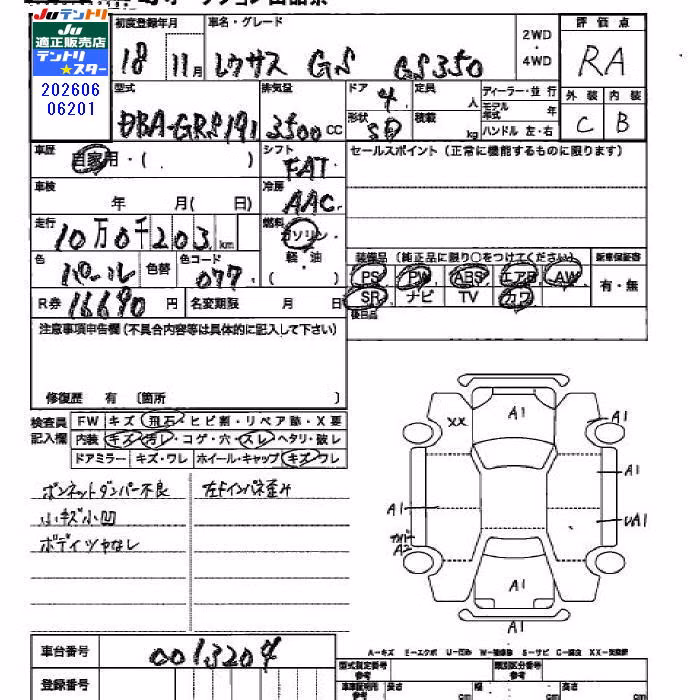 Juテントリ
Ju
適正販売店
テントリ
★スター
202606
06201
初度登録年月
18 11月
車名・グレード
レクサス GS GS350
2WD
・
4WD
評価点
RA
外装 内装
C B
型式
DBA-GRS191
排気量
3500 cc
ドア
4
形状
SD
定員
人
積載
kg
ディーラー・並行
モデル年式 年
ハンドル 左・右
車歴
自家用・( )
シフト
FAT
セールスポイント (正常に機能するものに限ります)
車検
年 月( 日)
冷房
AAC
走行
10万0千203 km
燃料
ガソリン
軽・油
( )
色
パール
色替
色コード
077
R券 16690 円
名変期限 月 日
装備品 (純正品に限り〇をつけてください)
新車保証書
PS PW ABS エアB AW
SR ナビ TV カワ
有・無
後日品
注意事項申告欄(不具合内容等は具体的に記入して下さい)
修復歴 有 〔箇所 〕
検査員
記入欄
FW キズ・飛石・ヒビ割・リペア跡・X要
内装 キズ・汚レ・コゲ・穴・スレ・ヘタリ・破レ
ドアミラー キズ・ワレ ホイール・キャップ キズ・ワレ
ボンネットダンパー不良
小キズ小凹
ボディツヤなし
左Fインパネ歪み
XX
A1
A1
A1
A1
UA1
カバー
A2
A1
A1
A-キズ E-エクボ U-凹み W-補修跡 S-サビ C-腐食 XX-交換済
車台番号
0013204
登録番号
型式指定番号
参考
類別区分番号
参考
車庫証明用
参考
長さ cm
幅 cm
高さ cm